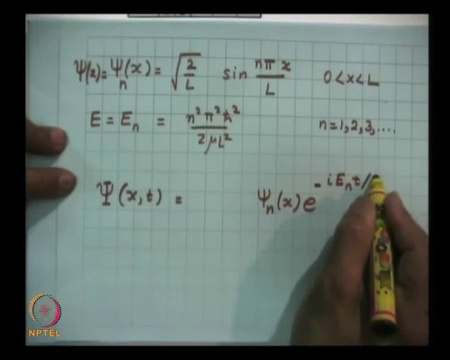 ψ(x) = ψₙ(x) = √(2/L) sin nπx/L 0<x<L
E = Eₙ = n²π²ħ²/2μL² n=1,2,3,....
Ψ(x,t) = ψₙ(x) e^(-iEₙt/
NPTEL